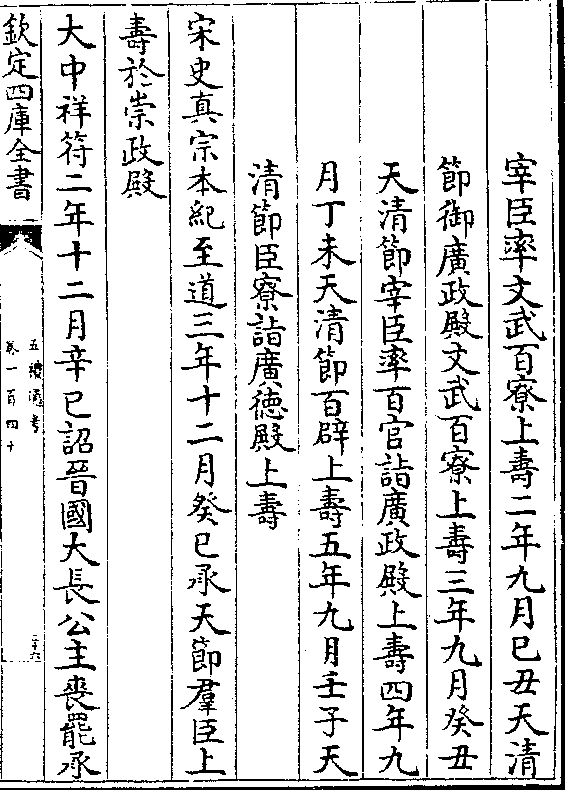 宰臣率文武百寮上壽二年九月已丑天清
節御廣政殿文武百寮上壽三年九月癸丑
天清節宰臣率百官詣廣政殿上壽四年九
月丁未天清節百辟上壽五年九月壬子天
清節臣寮詣廣德殿上壽
宋史真宗本紀至道三年十二月癸已承天節羣臣上
壽於崇政殿
大中祥符二年十二月辛已詔晉國大長公主喪罷承
欽定四庫全書
五禮通考
卷一百四十
二十六